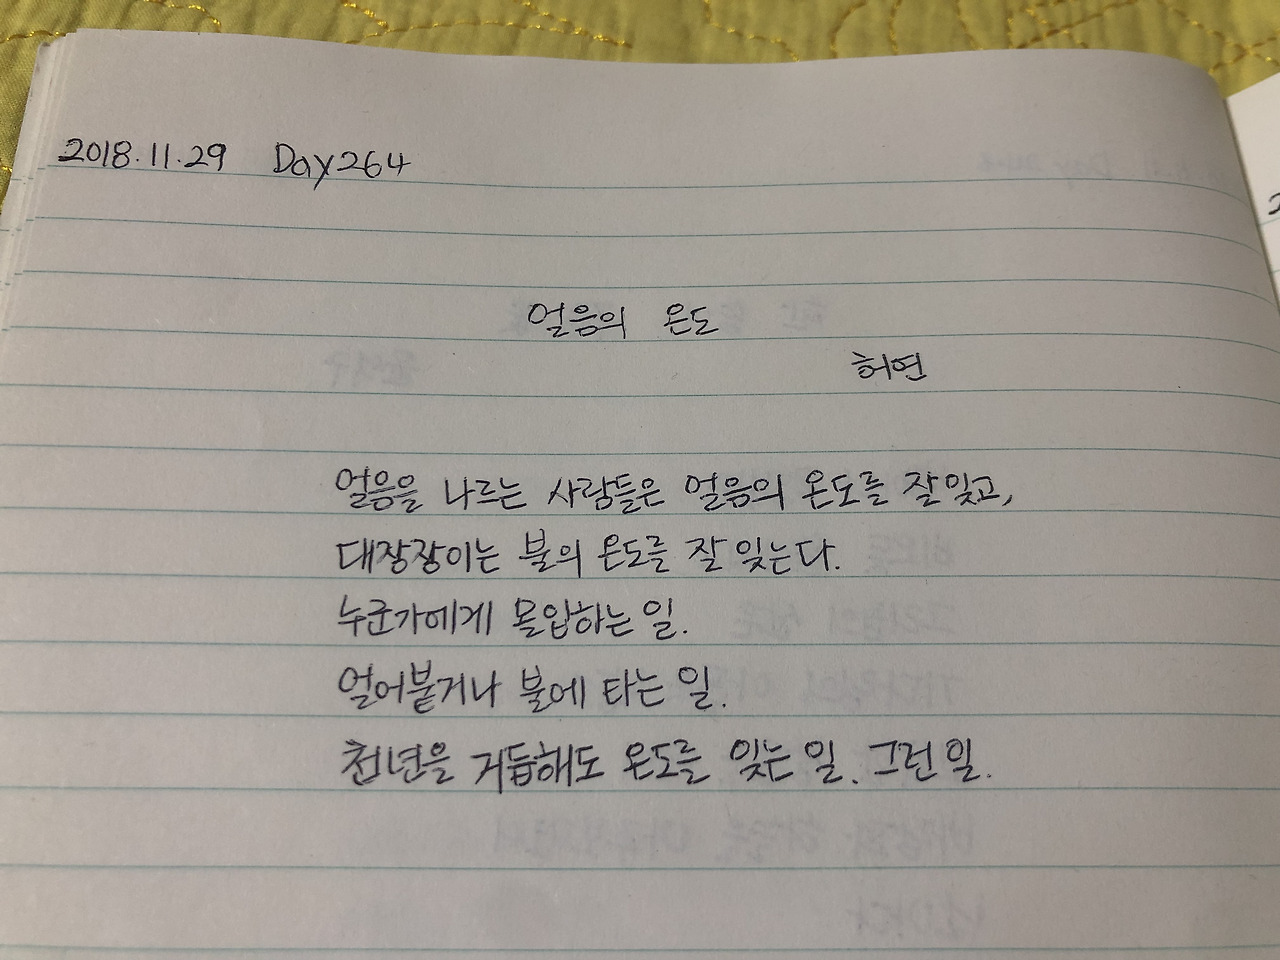 2018.11.29 Day264
얼음의 온도
허연
얼음을 나르는 사람들은 얼음의 온도를 잘 잊고,
대장장이는 불의 온도를 잘 잊는다.
누군가에게 몰입하는 일.
얼어붙거나 불에 타는 일.
천년을 거듭해도 온도를 잊는 일. 그런 일.